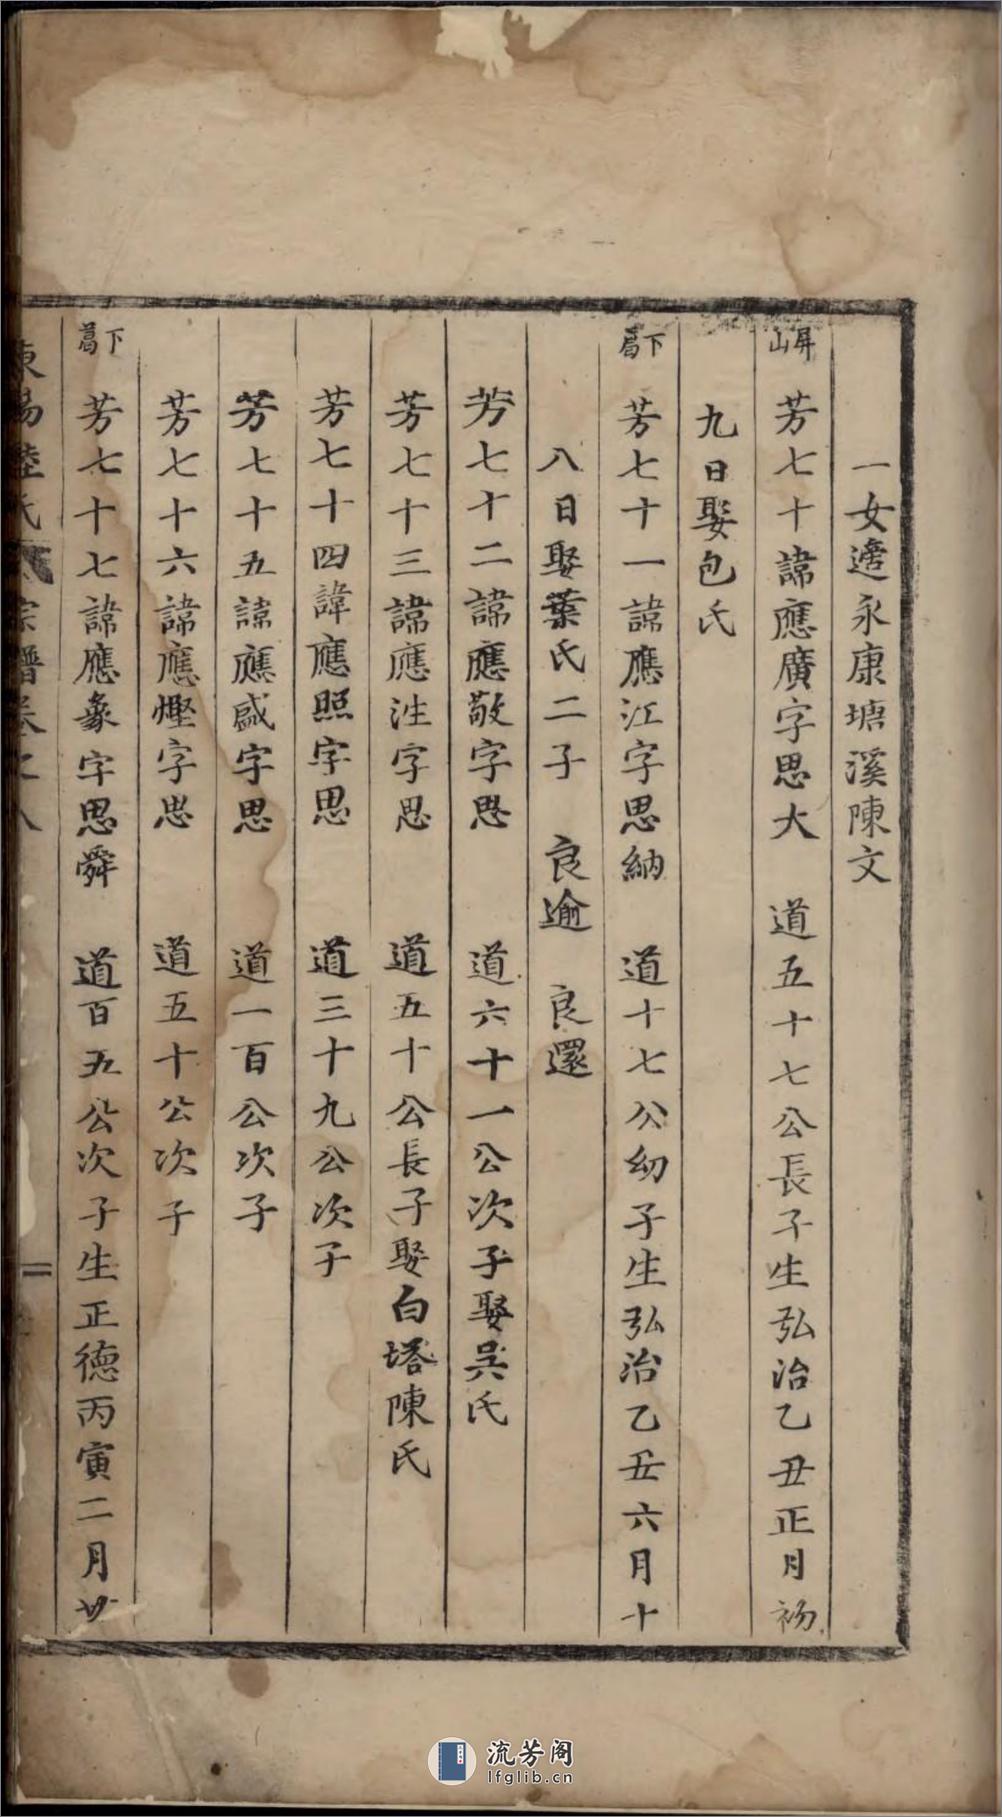 一女適永康塘溪陳文
屏山
芳七十諱應廣字思大 道五十七公長子生弘治乙丑正月初
九日娶包氏
下葛
芳七十一諱應江字思納 道十七公幼子生弘治乙丑六月十
八日娶葉氏二子 良逾 良還
芳七十二諱應敬字思 道六十一公次子娶吳氏
芳七十三諱應注字思 道五十公長子娶白塔陳氏
芳七十四諱應照字思 道三十九公次子
芳七十五諱應盛字思 道一百公次子
芳七十六諱應慳字思 道五十公次子
下葛
芳七十七諱應彖字思舜 道百五公次子生正德丙寅二月廿
東陽陸氏宗譜卷之八
流芳阁
lfglib.cn